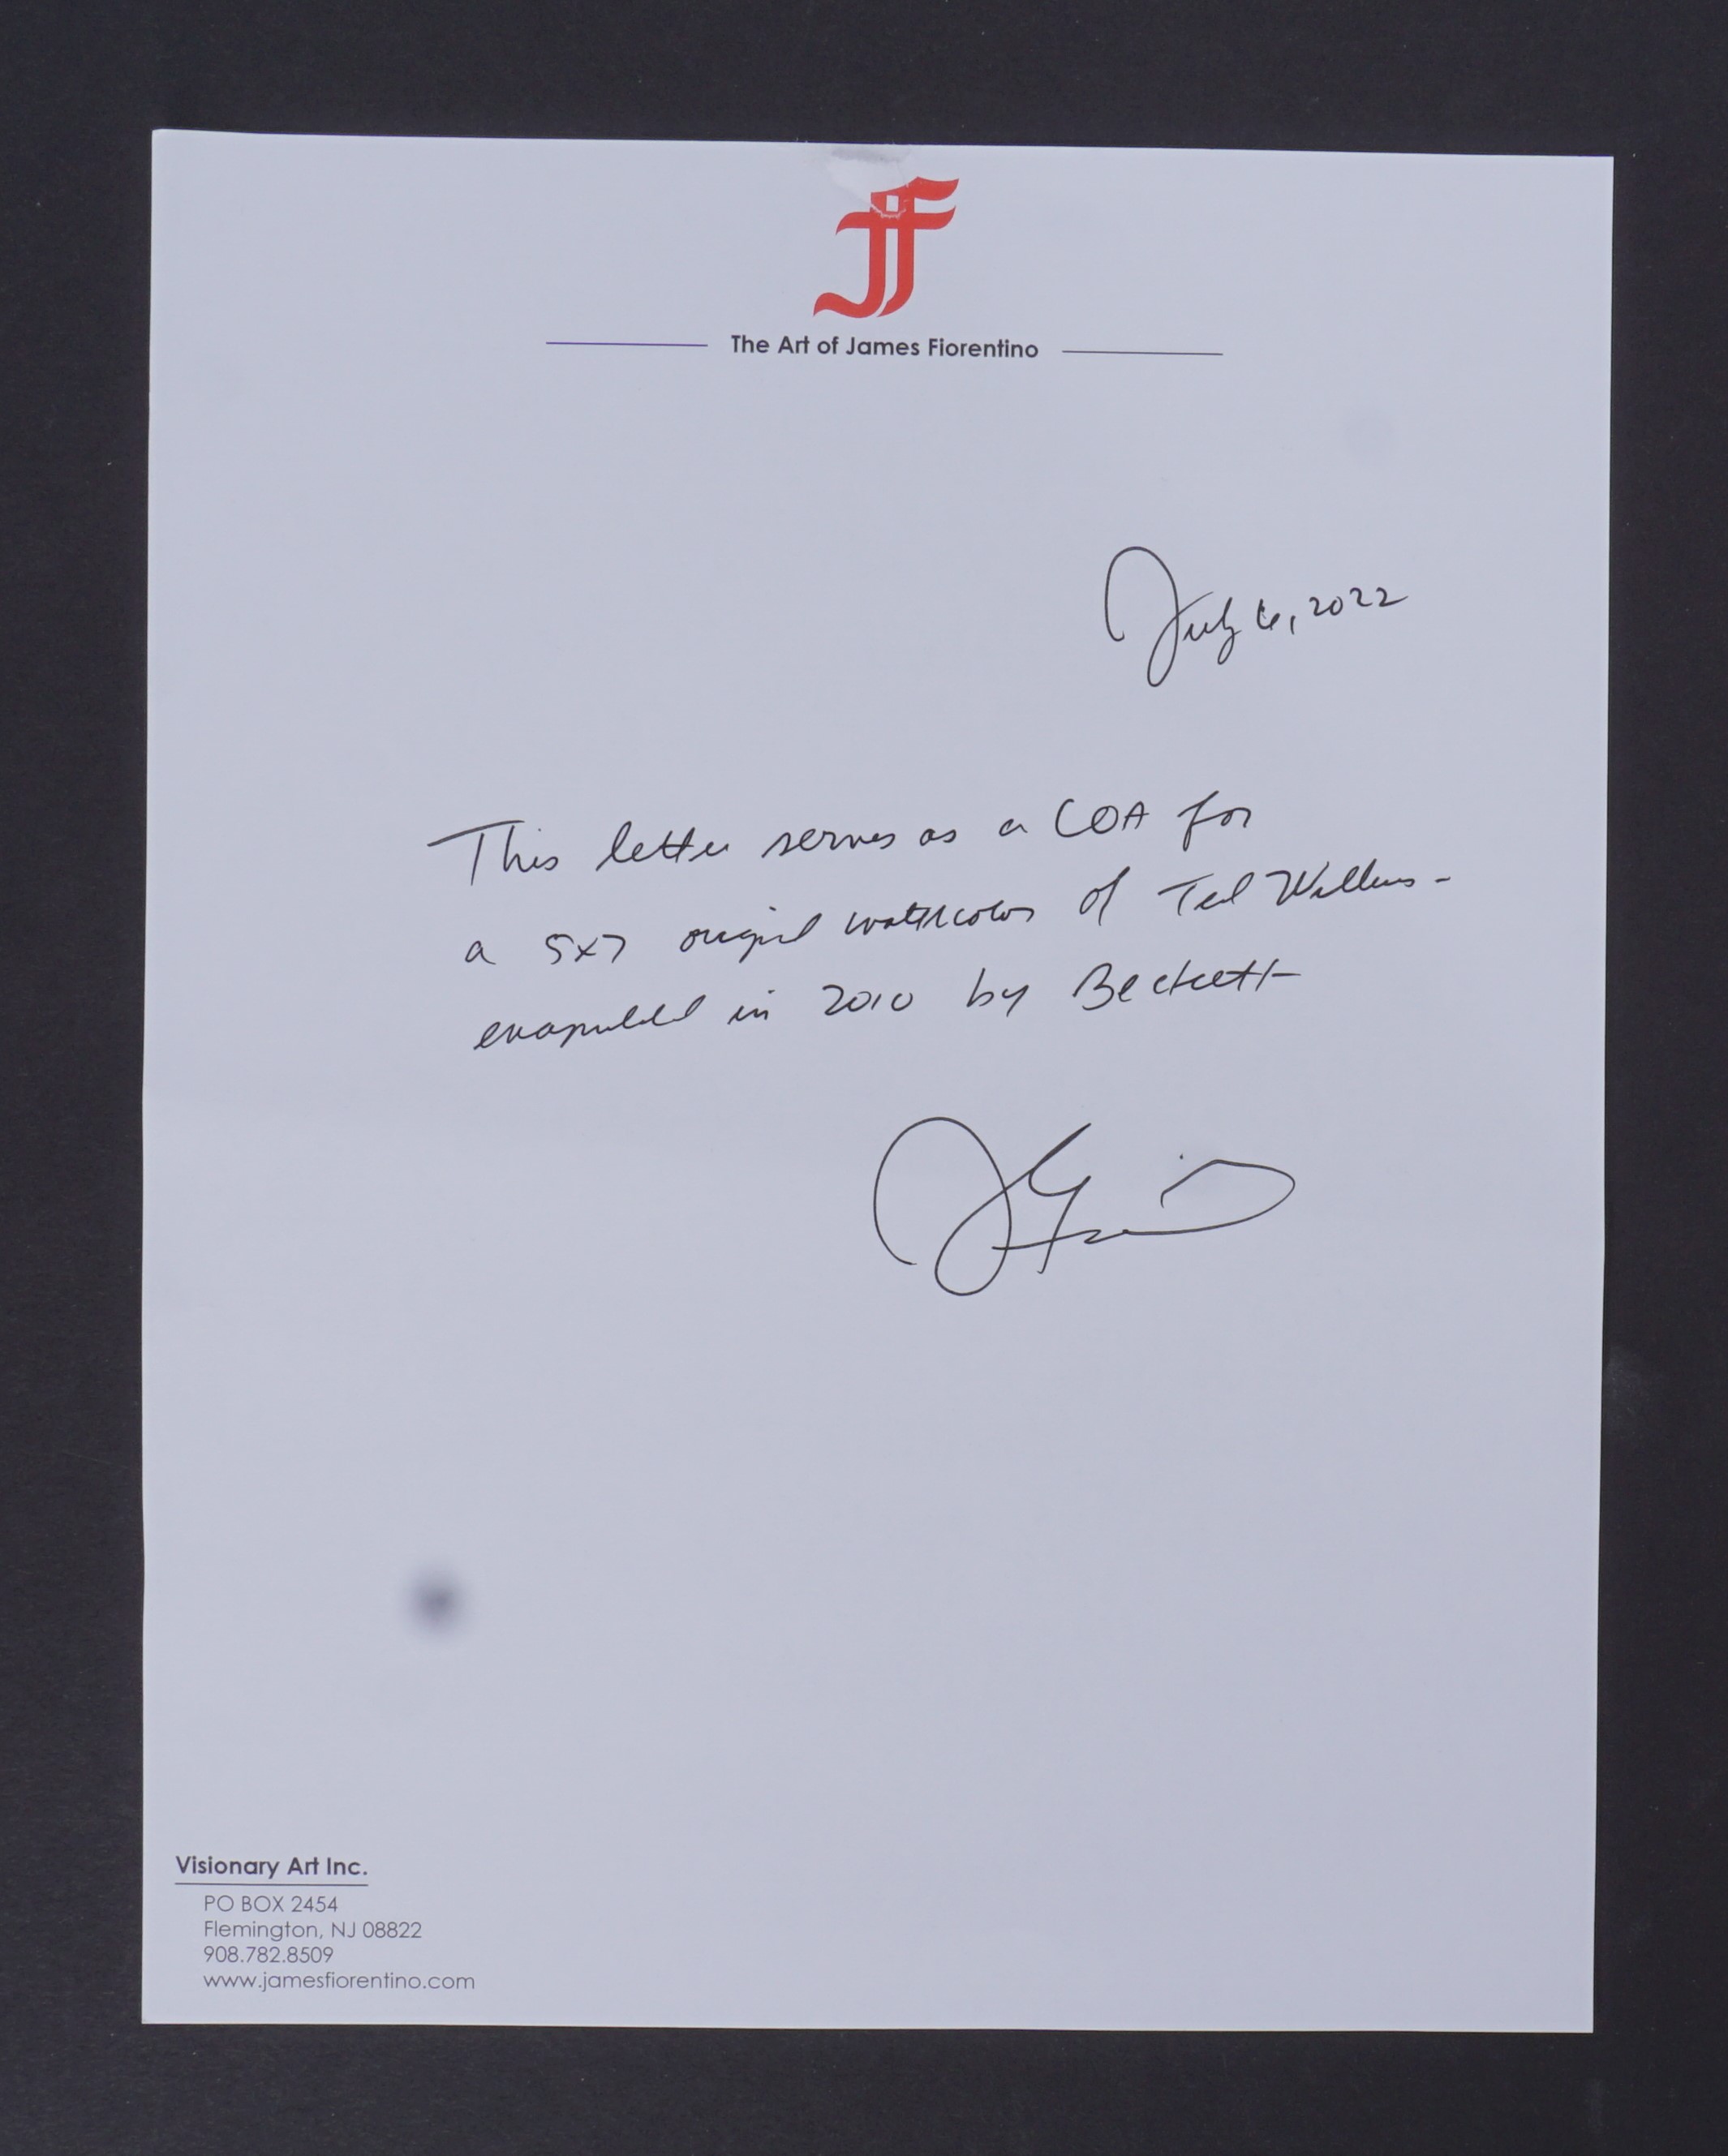 JF
The Art of James Fiorentino
July 6, 2022
This letter serves as a COA for
a 5x7 original watercolor of Ted Williams -
in 2010 by Beckett
Visionary Art Inc.
PO BOX 2454
Flemington, NJ 08822
908.782.8509
www.jamesfiorentino.com